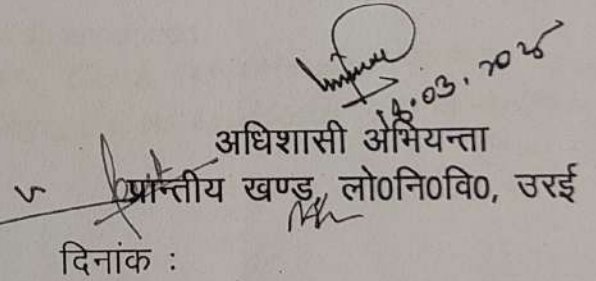 .03.2025
अधिशासी अभियन्ता
प्रान्तीय खण्ड, लो0नि0वि0, उरई
दिनांक :